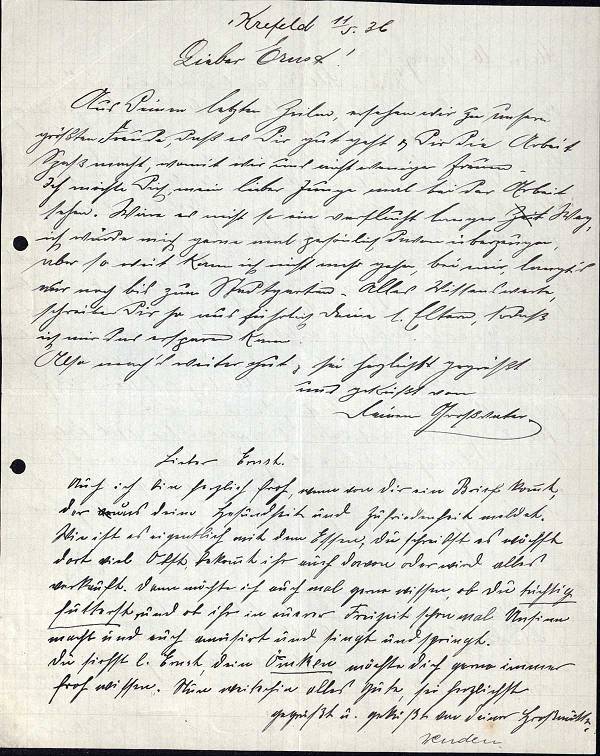 Krefeld 11/5. 36
Lieber Ernst!
Aus Deinen letzten Zeilen, ersehen wir zu unserer
größten Freude, daß es Dir gut geht & Dir die Arbeit
Spaß macht, womit wir uns nicht weniger freuen.
Ich möchte Dich, mein lieber Junge mal bei der Arbeit
sehen. Wäre es nicht so ein verflucht langer Weg,
ich würde mich gerne mal persönlich davon überzeugen,
aber so weit kann ich nicht mehr gehen, bei mir langt's
nur noch bis zum Stadtgarten. Alles Wissenswerte,
schreiben Dir so ausführlich Deine l. Eltern, sodaß
ich mir das ersparen kann.
Also mach's weiter gut & sei herzlichst gegrüßt
und geküßt von
Deinem Großvater
Lieber Ernst.
Auch ich bin herzlich froh, wenn von dir ein Brief kommt,
der uns deine Gesundheit und Zufriedenheit meldet.
Wie ist es eigentlich mit dem Essen, du schreibst es wächst
dort viel Obst, bekommt ihr auch davon oder wird alles
verkauft. Dann möchte ich auch mal gerne wissen ob du tüchtig
futterst, und ob ihr in eurer Freizeit schon mal Unsinn
macht und euch amüsirt und singt und springt.
Du siehst l. Ernst, dein Ömken möchte dich gerne immer
froh wissen. Nun weiterhin alles Gute, sei herzlichst
gegrüßt u. geküßt von deiner Großmutter